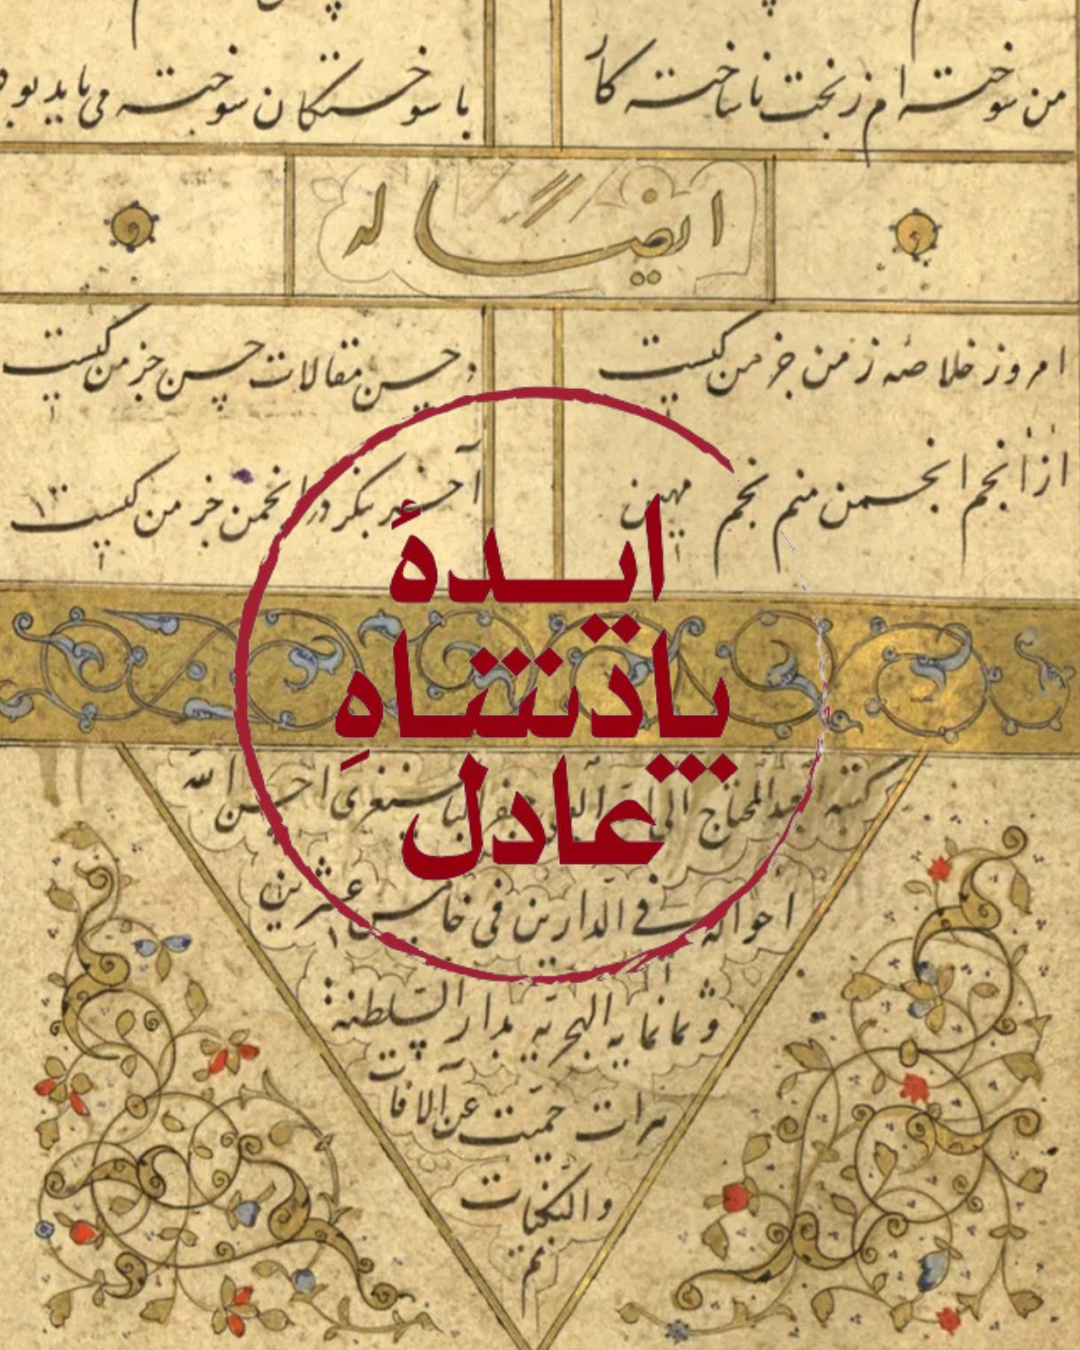 من سوخته‌ام ز بخت ناساخته کار
با سوختگان سوخته می‌باید بود
ایضا له
امروز خلاصهٔ زمن جز من کیست
در حسن مقالات حسن جز من کیست
از انجم انجمن منم نجم مهین
آخر بنگر در انجمن جز من کیست
ایدۀ
پادشاهِ
عادل
کتبه العبد المحتاج الی جعفر البایسنغری احسن الله
احواله فی الدارین فی خامس عشرین
و ثمانمایه الهجریه بدار السلطنه
هراة حمیت عن الآفات
والنکبات
تم